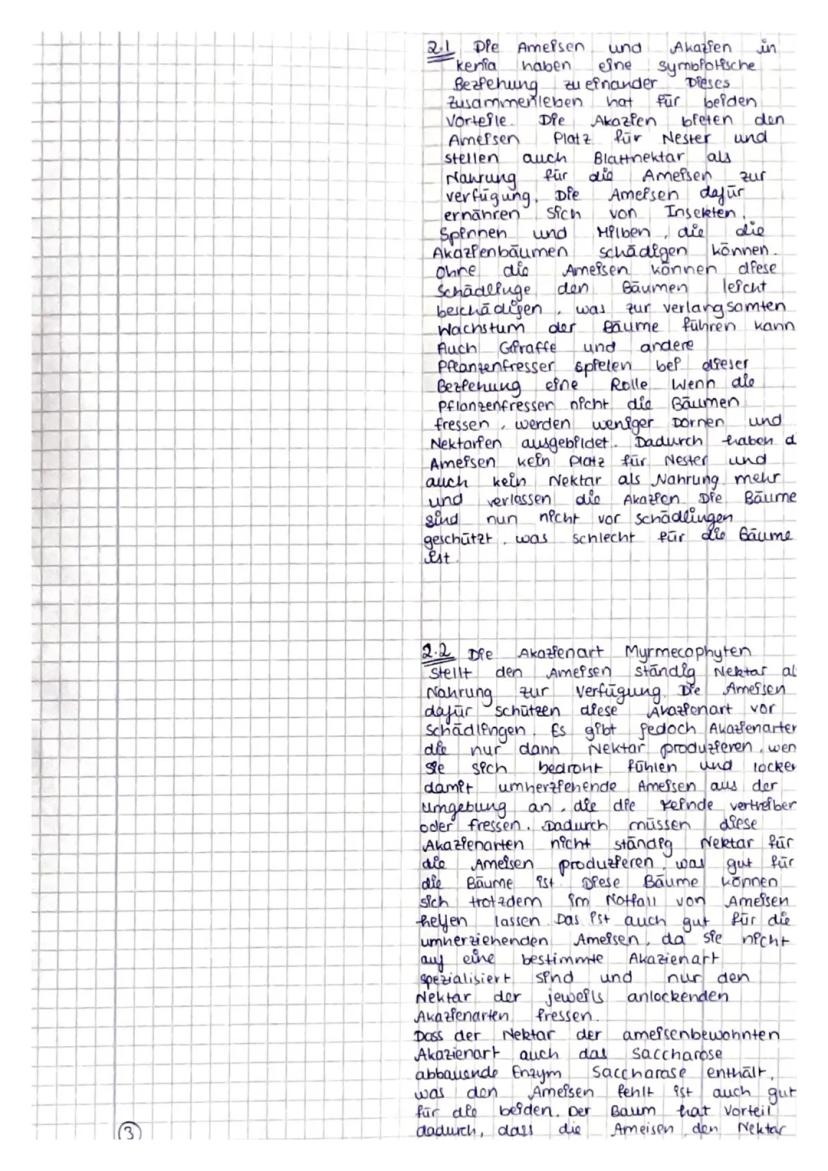 2.1 Die Ameisen und Akazien in
Kenia haben eine symbiotische
Beziehung zueinander Dieses
Zusammenleben hat für beiden
Vorteile. Die Akazien bieten den
Ameisen Platz für Nester und
stellen auch Blattnektar als
Nahrung für die Ameisen zur
verfügung. Die Ameisen dafür
ernähren sich von Insekten,
Spinnen und Milben, die die
Akazienbäumen schädigen können.
Ohne die Ameisen können diese
Schädlinge den Bäumen leicht
beschädigen, was zur verlangsamten
Wachstum der Bäume führen kann
Auch Giraffe und andere
Pflanzenfresser spielen bei dieser
Beziehung eine Rolle Wenn die
Pflanzenfresser nicht die Bäumen
fressen, werden weniger Dornen und
Nektarien ausgebildet. Dadurch haben d
Ameisen kein Platz für Nester und
auch kein Nektar als Nahrung mehr
und verlassen die Akazien Die Bäume
sind nun nicht vor schädlingen
geschützt, was schlecht für die Bäume
ist.
2.2 Die Akazienart Myrmecophyten
stellt den Ameisen ständig Nektar al
Nahrung zur Verfügung. Die Ameisen
dafür schützen diese Akazienart vor
Schädlingen. Es gibt jedoch Akazienarten
die nur dann Nektar produzieren, wen
sie sich bedroht fühlen und locken
damit umherziehende Ameisen aus der
Umgebung an, die die Feinde vertreiben
oder fressen. Dadurch müssen diese
Akazienarten nicht ständig Nektar für
die Ameisen produzieren, was gut für
die Bäume ist. Diese Bäume können
sich trotzdem im Notfall von Ameisen
helfen lassen. Das ist auch gut für die
umherziehenden Ameisen, da sie nicht
auf eine bestimmte Akazienart
spezialisiert sind und nur den
Nektar der jeweils anlockenden
Akazienarten fressen.
Dass der Nektar der ameisenbewohnten
Akazienart auch das Saccharose
abbauende Enzym Saccharase enthält,
was den Ameisen fehlt ist auch gut
für die beiden. Der Baum hat Vorteil
dadurch, dass die Ameisen den Nektar
3